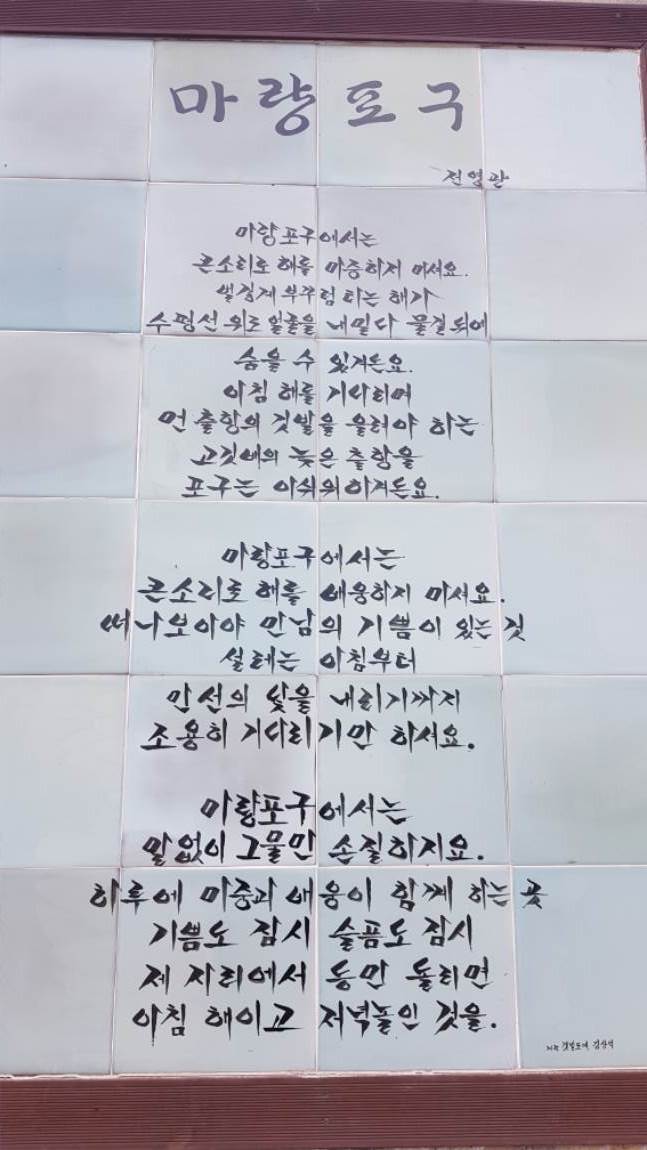 마량포구
전영관
마량포구에서는
큰소리로 해를 마중하지 마셔요.
벌겋게 부끄럼 타는 해가
수평선 위로 얼굴을 내밀다 물결 뒤에
숨을 수 있거든요.
아침 해를 기다리며
먼 출항의 깃발을 올려야 하는
고깃배의 늦은 출항을
포구는 아쉬워하거든요.
마량포구에서는
큰소리로 해를 배웅하지 마셔요.
떠나보아야 만남의 기쁨이 있는 것
설레는 아침부터
만선의 닻을 내리기까지
조용히 기다리기만 하셔요.
마량포구에서는
말없이 그물만 손질하지요.
하루에 마중과 배웅이 함께 하는 곳
기쁨도 잠시 슬픔도 잠시
제 자리에서 등만 돌리면
아침 해이고 저녁놀인 것을.
김상석